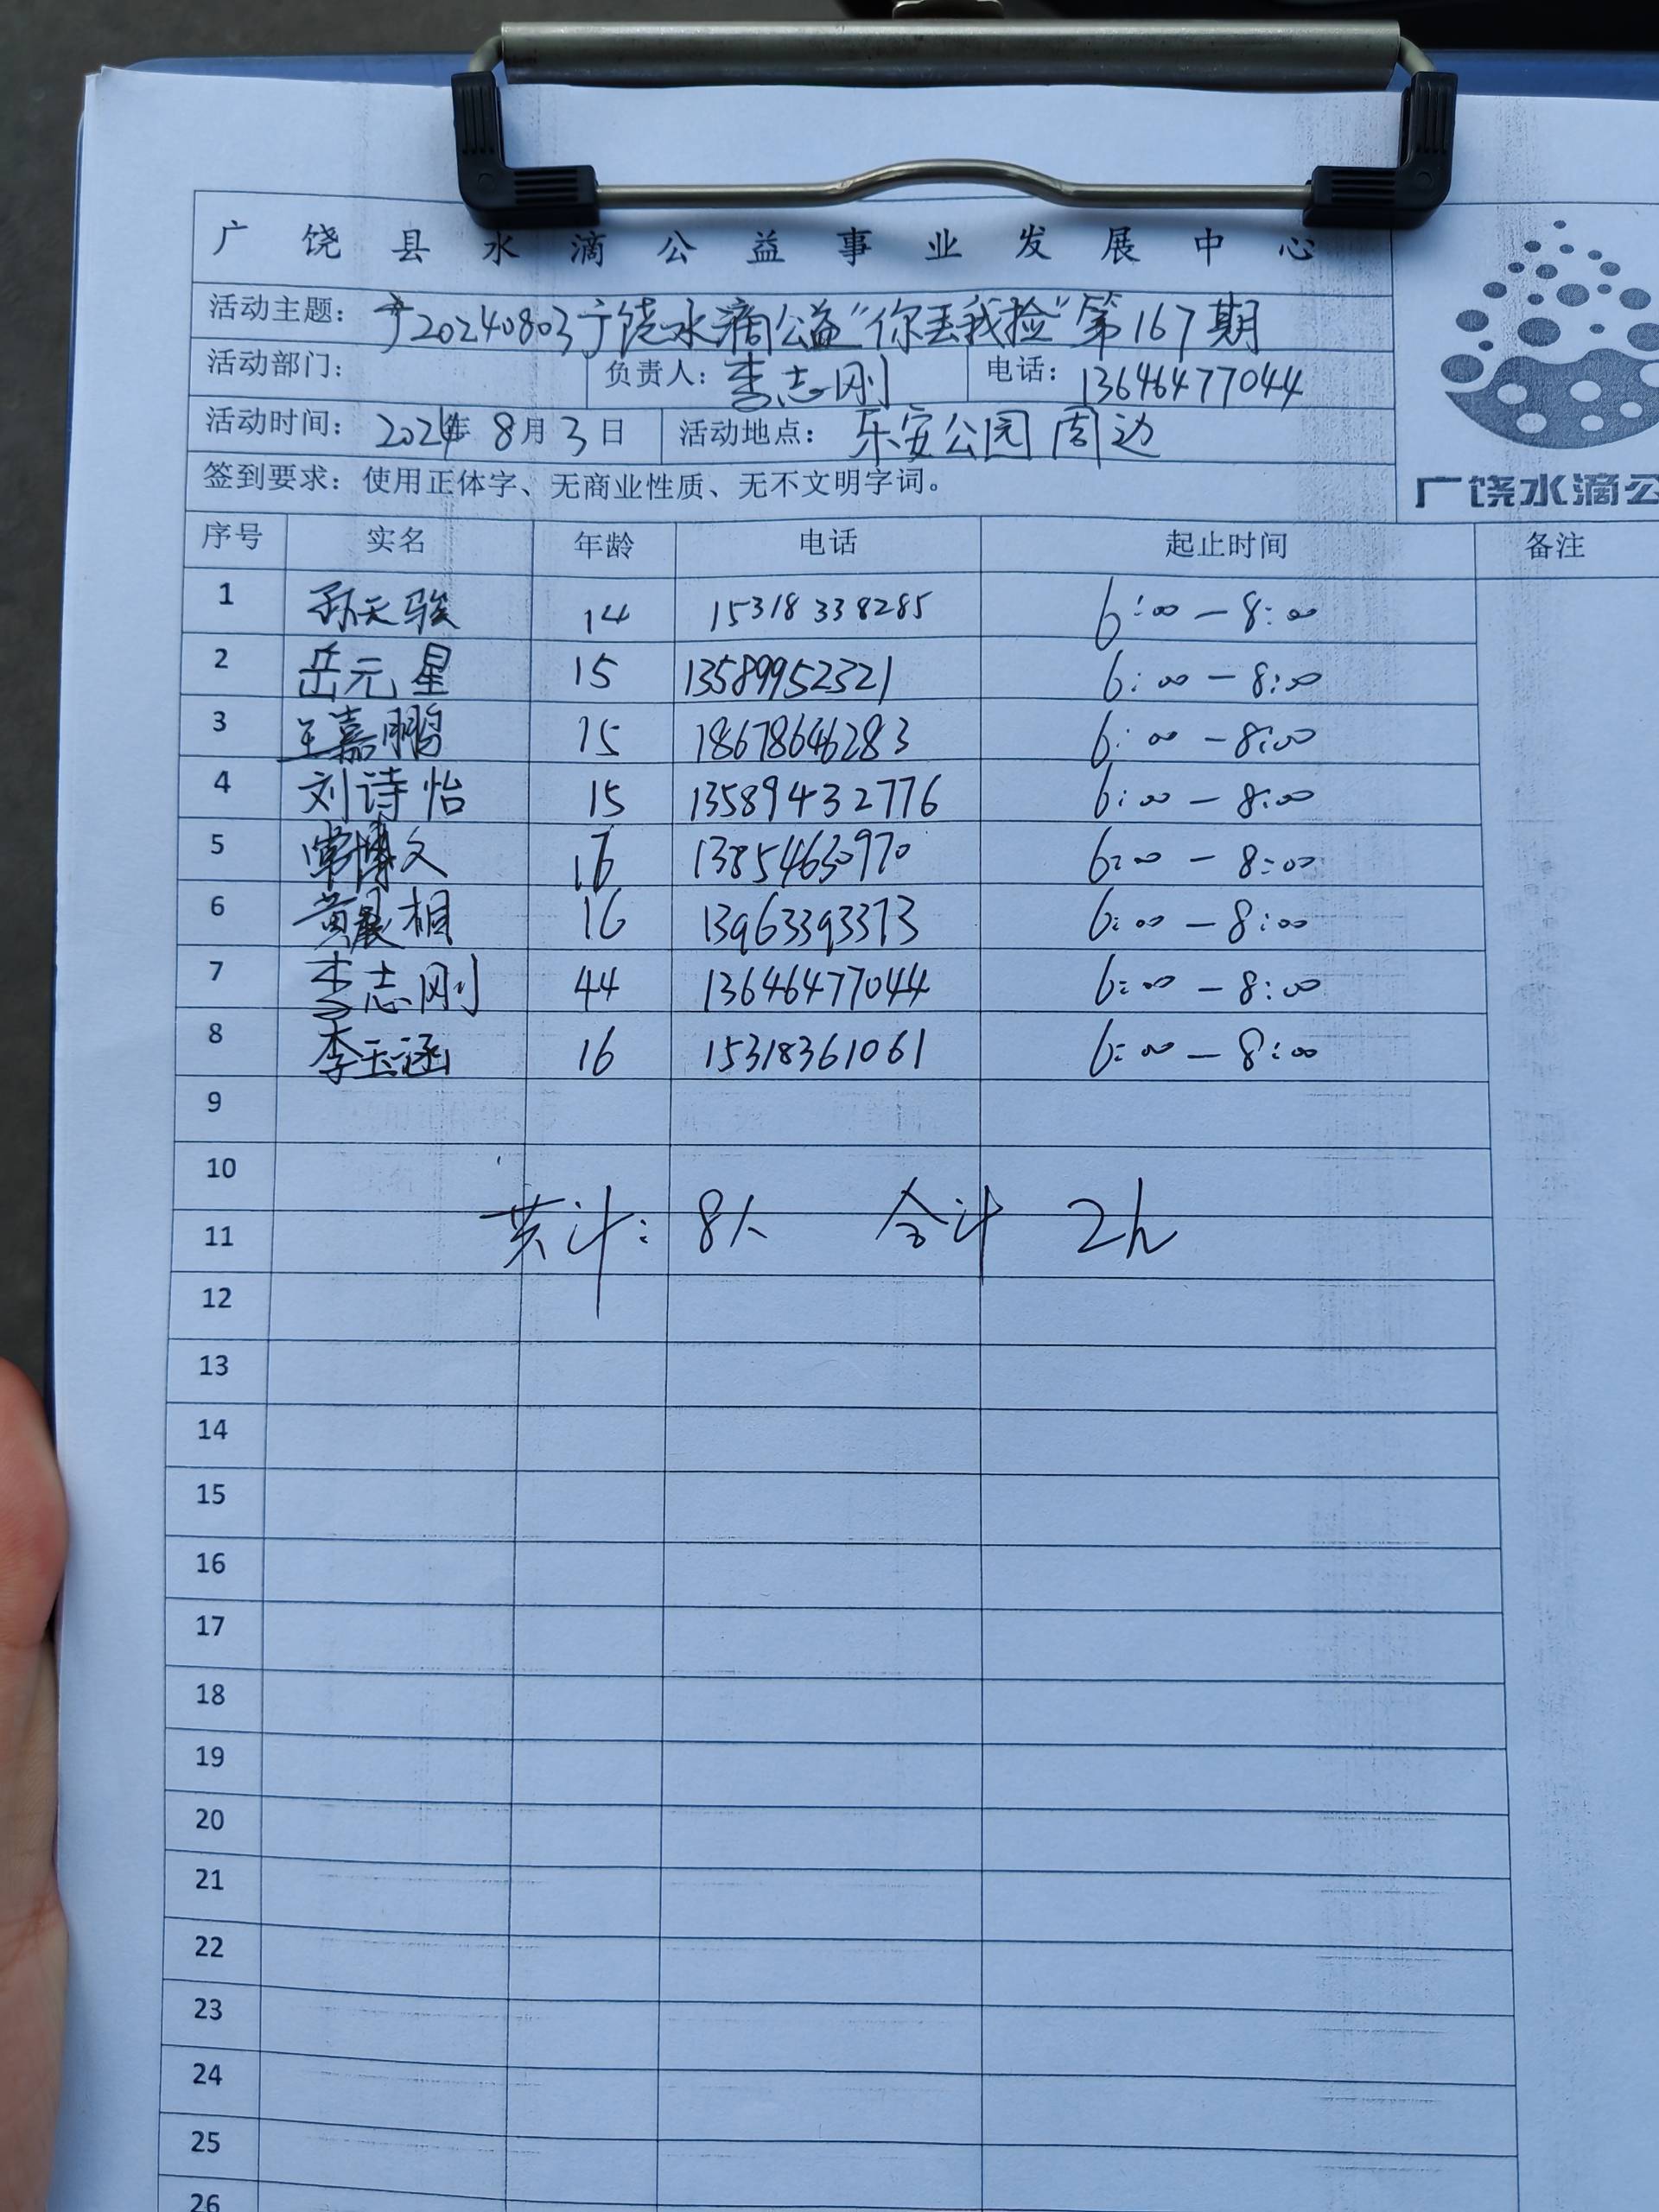 广饶县水滴公益事业发展中心
活动主题：广20240803广饶水滴公益“你丢我捡”第167期
活动部门： 负责人：李志刚 电话：13646477044
活动时间：2024年8月3日 活动地点：乐安公园周边
签到要求：使用正体字、无商业性质、无不文明字词。
广饶水滴公
序号 实名 年龄 电话 起止时间 备注
1 孙天骏 14 15318338285 6:00-8:00
2 岳元星 15 13589952321 6:00-8:00
3 王嘉鹏 15 18678646283 6:00-8:00
4 刘诗怡 15 13589432776 6:00-8:00
5 常博文 16 13854630970 6:00-8:00
6 黄晟相 16 13963393373 6:00-8:00
7 李志刚 44 13646477044 6:00-8:00
8 李玉涵 16 15318361061 6:00-8:00
9
10
共计：8人 合计 2h
11
12
13
14
15
16
17
18
19
20
21
22
23
24
25
26